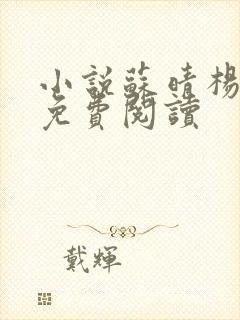 小說蘇晴楊
免費閱讀
戴輝